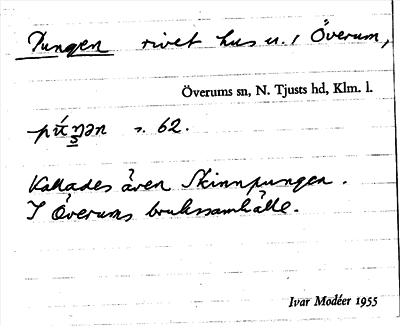 Pungen rivet hus u. i Överum,
Överums sn, N. Tjusts hd, Klm. l.
s. 62.
Kallades även Skinnpungen.
I Överums brukssamhälle.
Ivar Modéer 1955